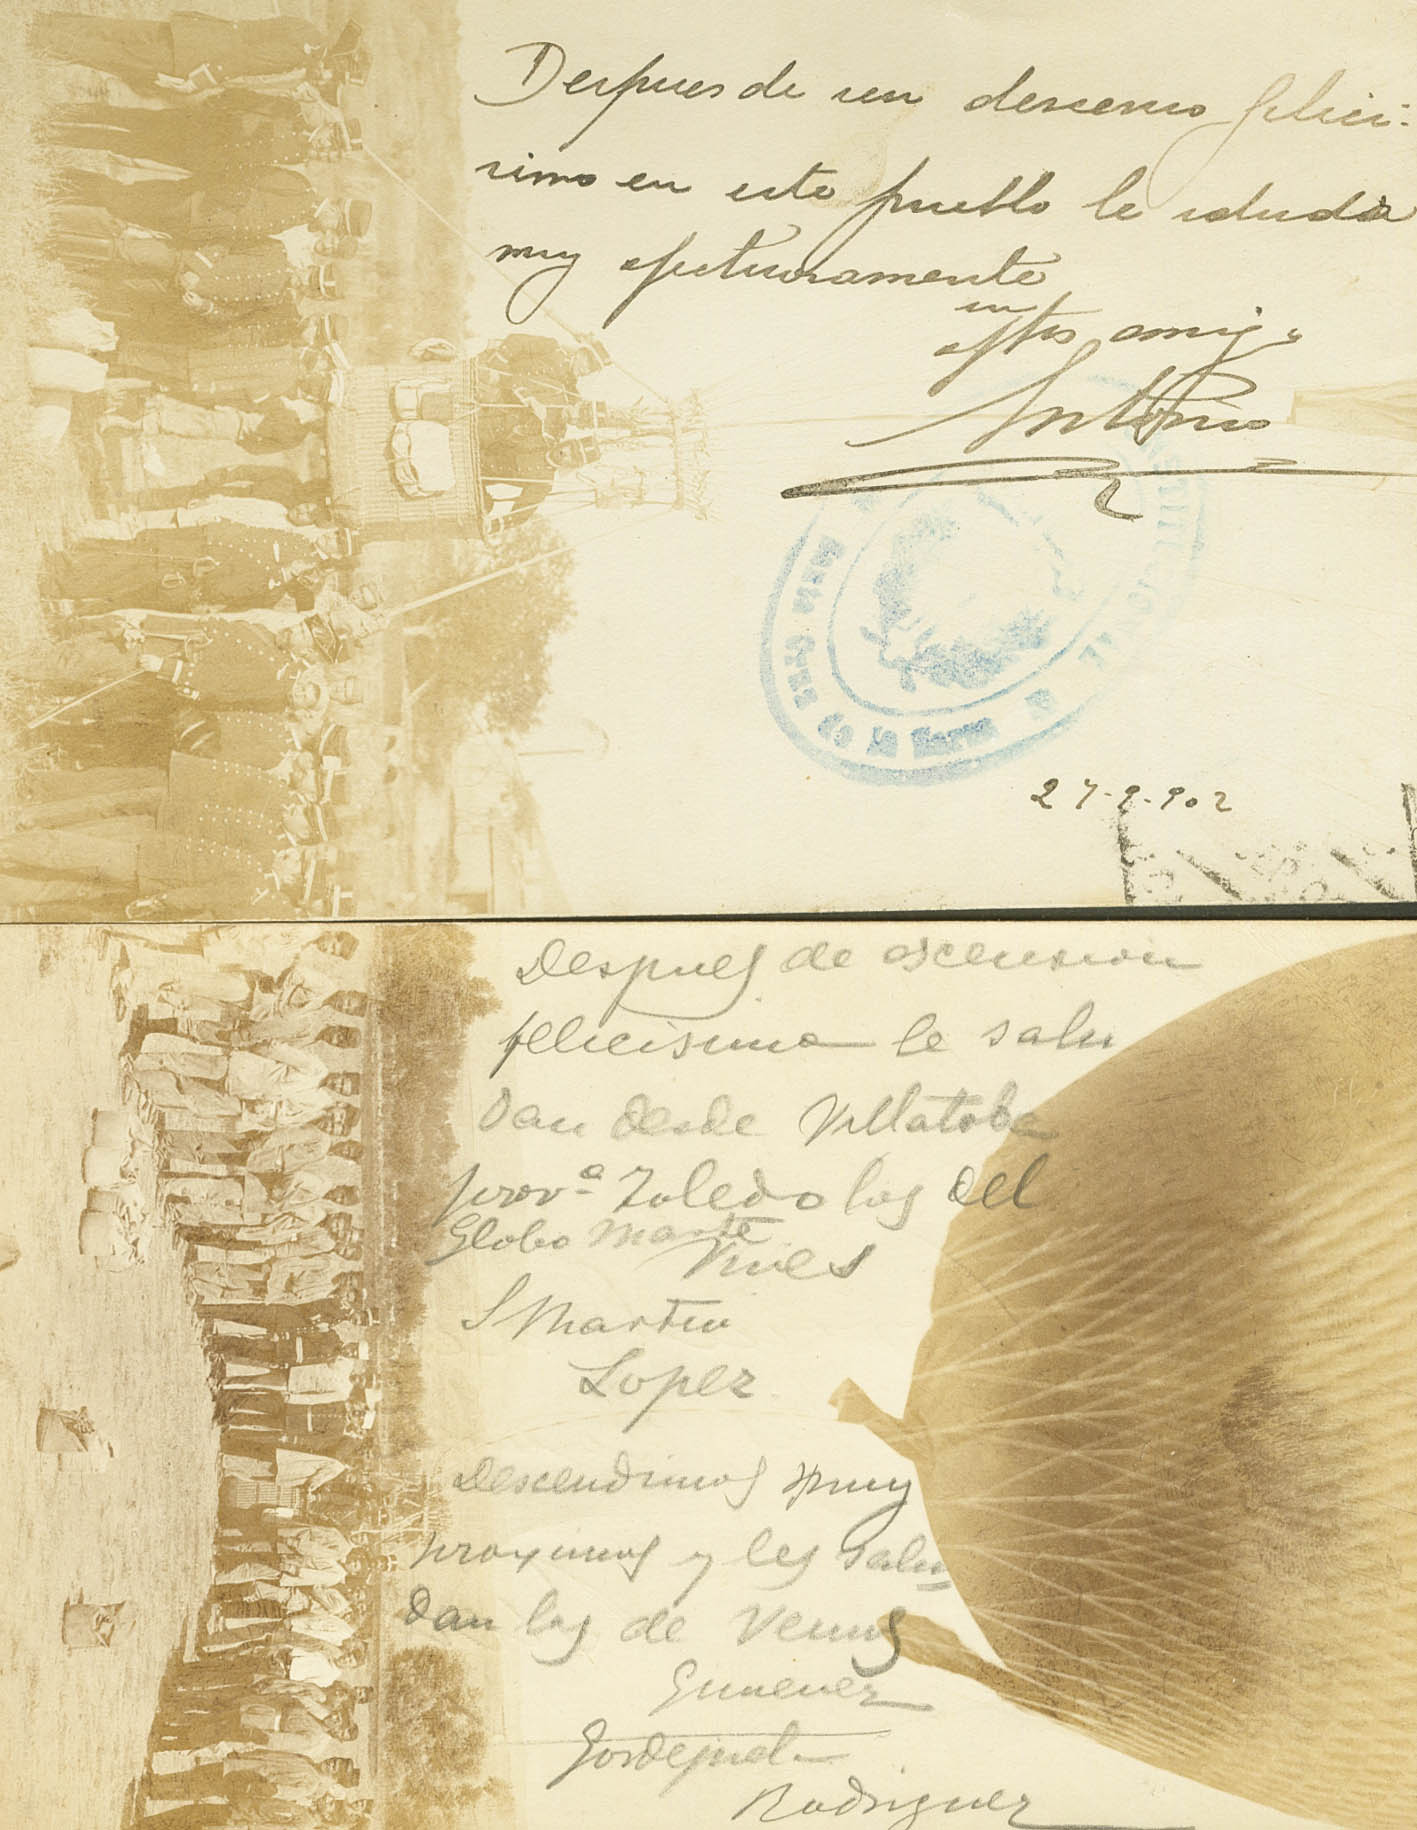 Despues de un descenso felici-
simo en este pueblo le saluda
muy afectuosamente
su
aftmo amigo
Antonio
Santa Cruz de la Zarza
27-9-902
Despues de ascension
felicisima le salu
dan desde Villatoba
provª Toledo los del
Globo Marte
Vives
S Martin
Lopez
Descendimos muy
proximos y les salu
dan los de Venus
Gimenez
Gordejuela
Rodriguez